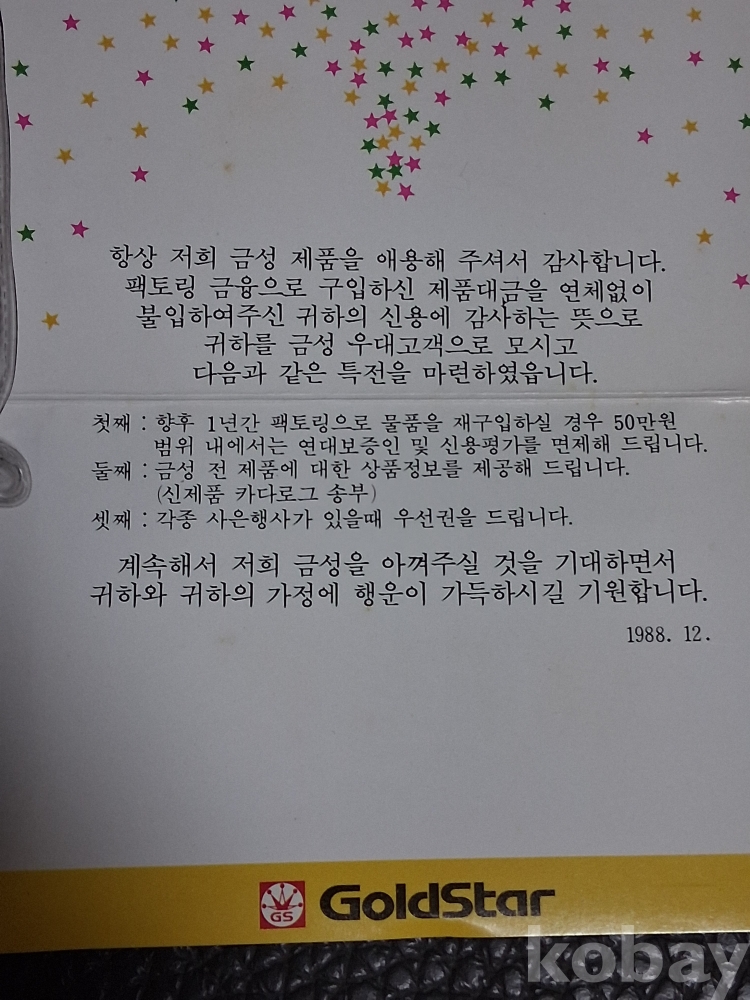 항상 저희 금성 제품을 애용해 주셔서 감사합니다.
팩토링 금융으로 구입하신 제품대금을 연체없이
불입하여주신 귀하의 신용에 감사하는 뜻으로
귀하를 금성 우대고객으로 모시고
다음과 같은 특전을 마련하였읍니다.
첫째 : 향후 1년간 팩토링으로 물품을 재구입하실 경우 50만원
범위 내에서는 연대보증인 및 신용평가를 면제해 드립니다.
둘째 : 금성 전 제품에 대한 상품정보를 제공해 드립니다.
(신제품 카다로그 송부)
셋째 : 각종 사은행사가 있을때 우선권을 드립니다.
계속해서 저희 금성을 아껴주실 것을 기대하면서
귀하와 귀하의 가정에 행운이 가득하시길 기원합니다.
1988. 12.
GS GoldStar
kobay